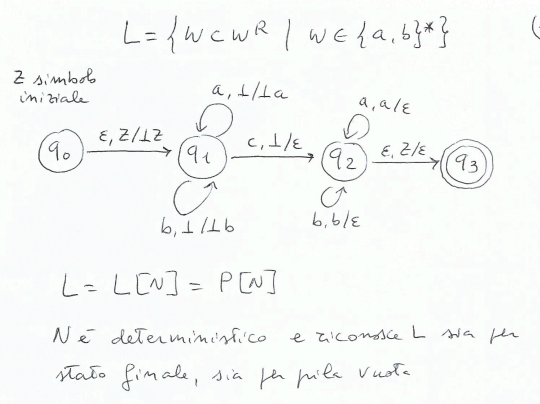 L = { w c w^R | w ∈ {a, b}* }
(
Z simbolo
iniziale
a, ⊥/⊥a
a, a/ε
q0
ε, Z/⊥Z
q1
c, ⊥/ε
q2
ε, Z/ε
q3
b, ⊥/⊥b
b, b/ε
L = L[N] = P[N]
N è deterministico e riconosce L sia per
stato finale, sia per pila vuota